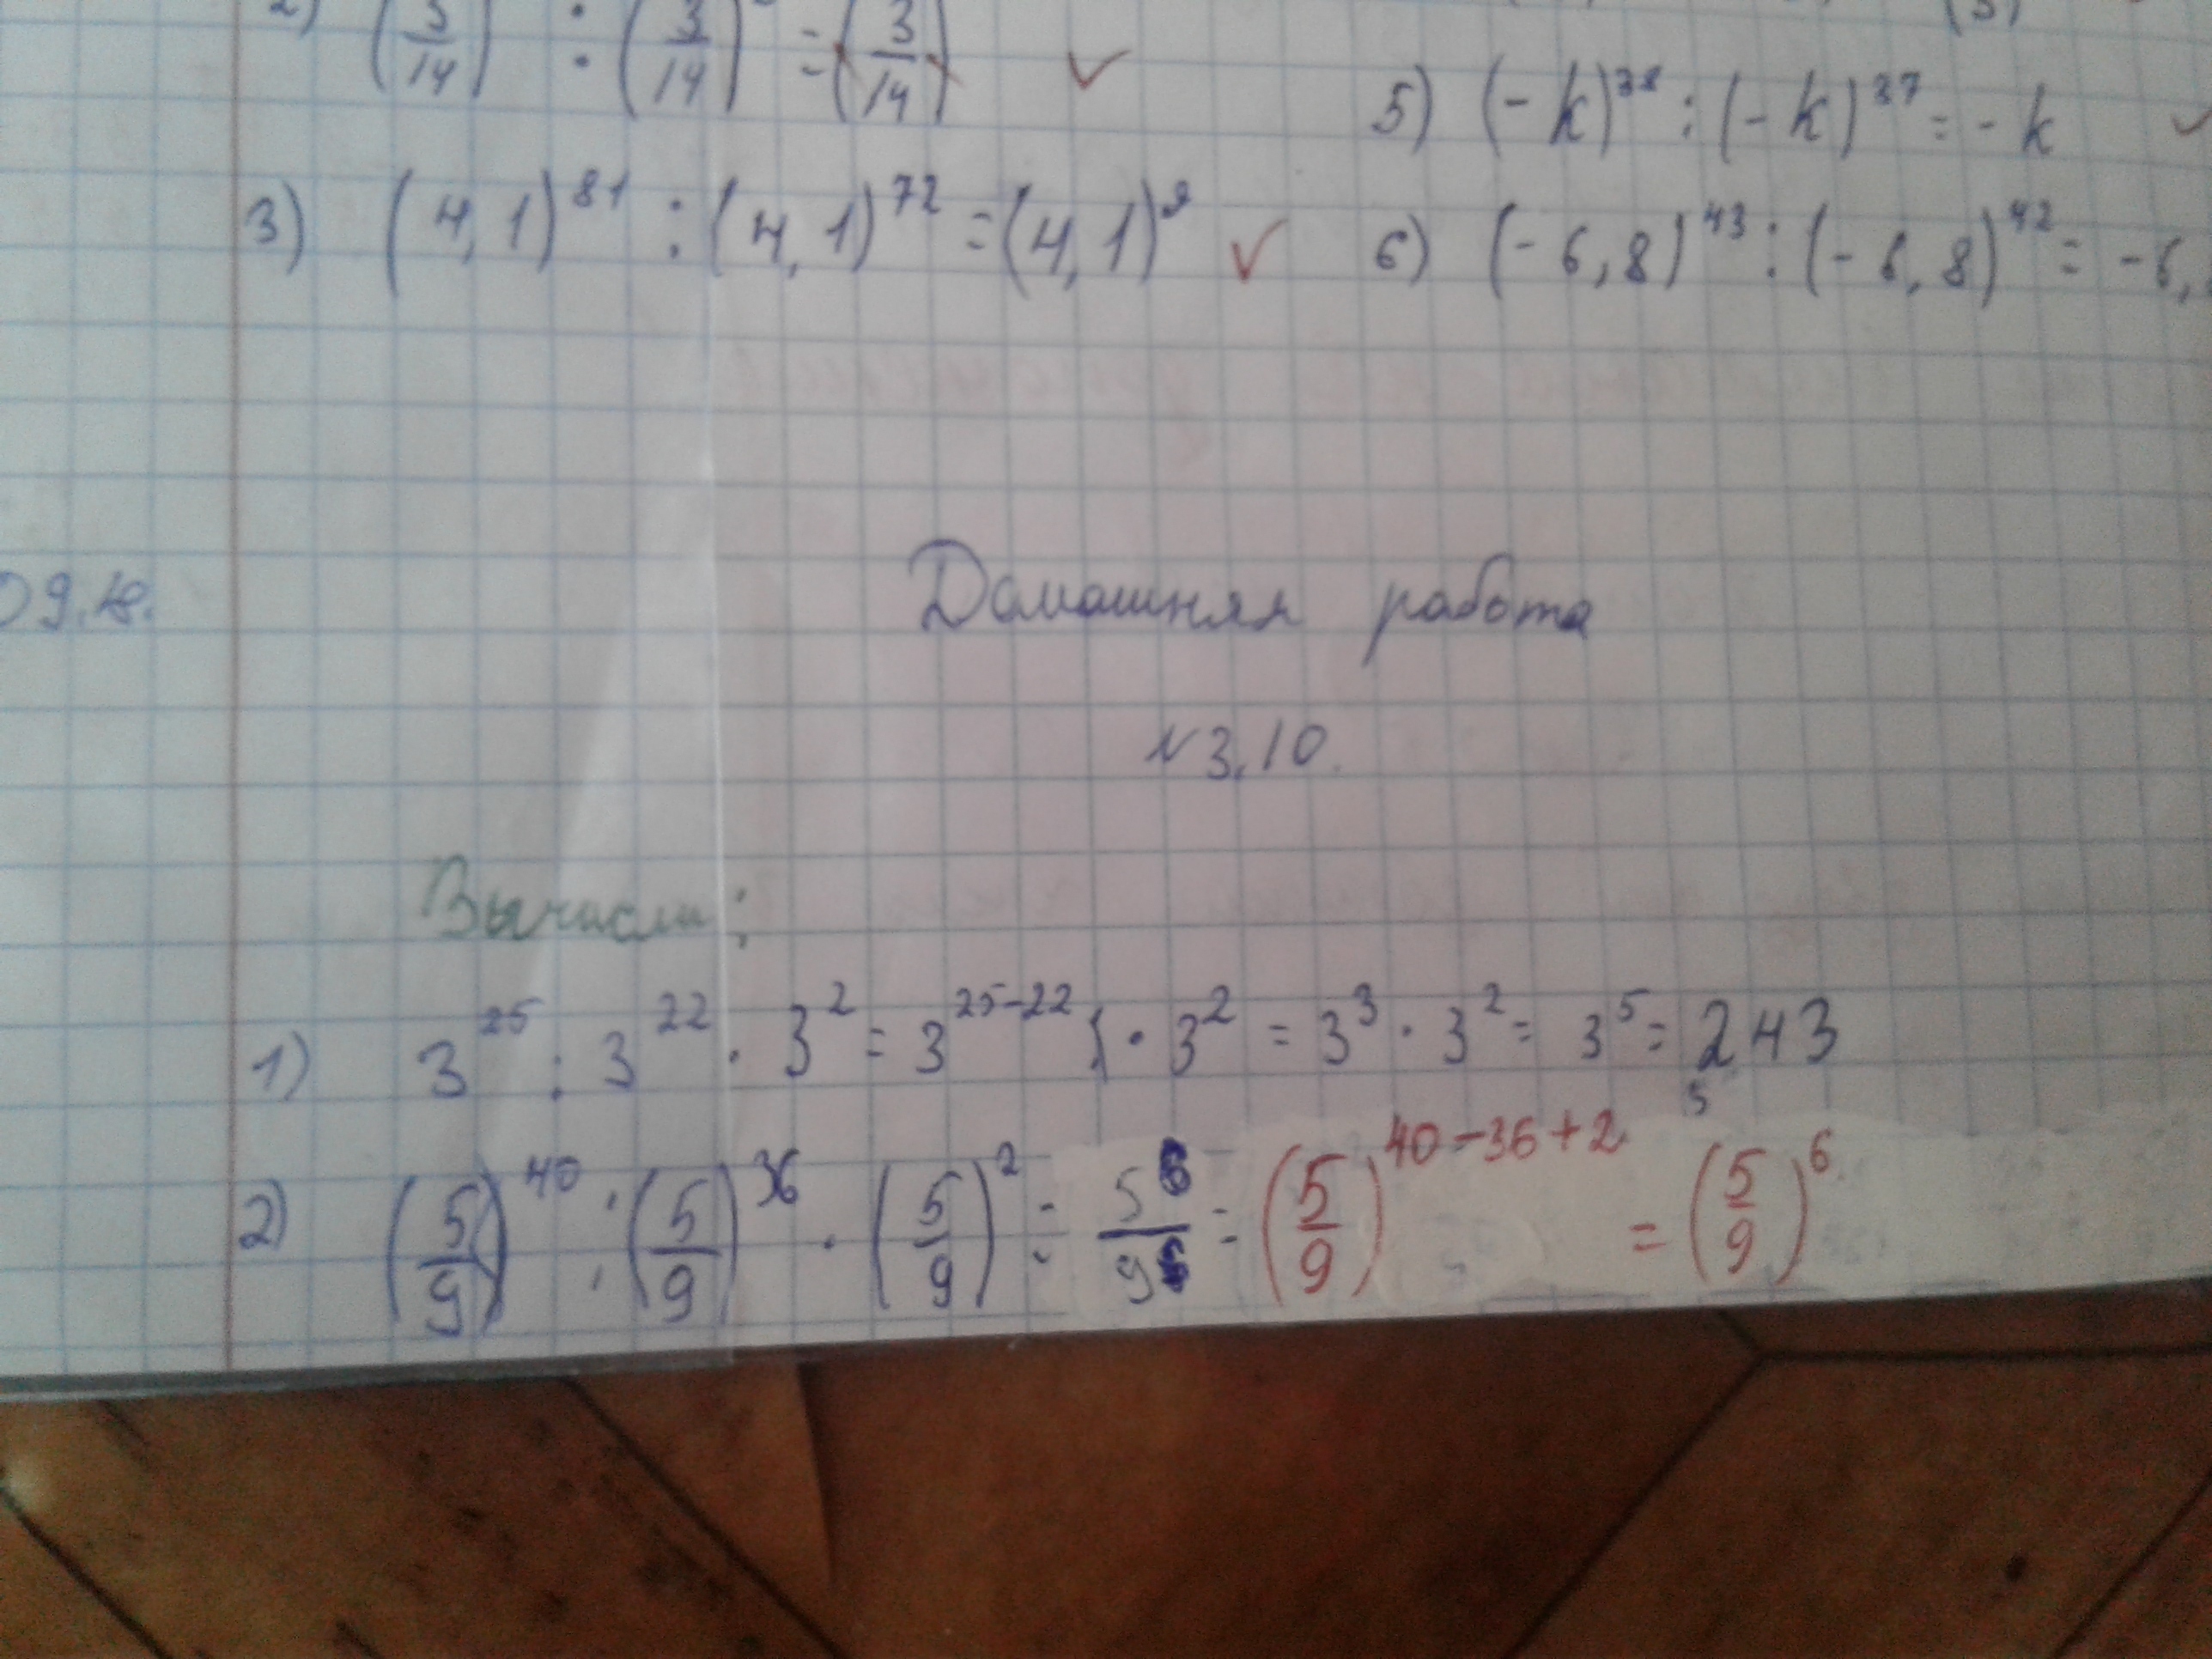 2) (3/14) : (3/14) = (3/14)
5) (-k)³⁸ : (-k)³⁷ = -k
3) (4,1)⁸¹ : (4,1)⁷² = (4,1)⁹
6) (-6,8)⁴³ : (-6,8)⁴² = -6,8
Домашняя работа
№3.10.
Вычисли:
1) 3²⁵ : 3²² · 3² = 3²⁵⁻²² · 3² = 3³ · 3² = 3⁵ = 243
2) (5/9)⁴⁰ : (5/9)³⁶ · (5/9)² = 5⁶/9⁶ = (5/9)⁴⁰⁻³⁶⁺² = (5/9)⁶